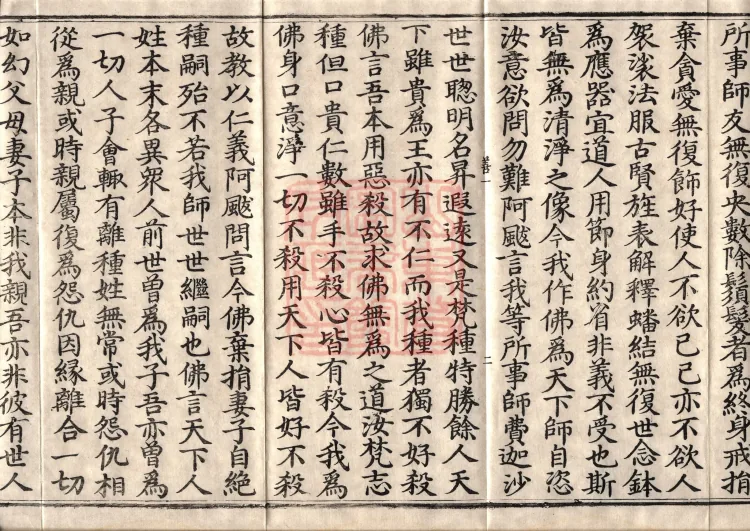 所事師友無復央數除鬚髮者為終身戒捐
棄貪愛無復飾好使人不欲己己亦不欲人
袈裟法服古賢旌表解釋蟠結無復世念鉢
為應器宜道人用節身約省非義不受也斯
皆無為清淨之像今我作佛為天下師自恣
汝意欲問勿難阿颰言我等所事師費迦沙
善一
二
世世聦明名昇遐逺又是梵種特勝餘人天
下雖貴為王亦有不仁而我種者獨不好殺
佛言吾本用惡殺故求佛無為之道汝梵志
種但口貴仁數雖手不殺心皆有殺今我為
佛身口意淨一切不殺用天下人皆好不殺
故教以仁義阿颰問言今佛棄捐妻子自絕
種嗣殆不若我師世世繼嗣也佛言天下人
姓本末各異衆人前世曽為我子吾亦曽為
一切人子會輙有離種姓無常或時怨仇相
從為親或時親屬復為怨仇因緣離合一切
如幻父母妻子本非我親吾亦非彼有世人